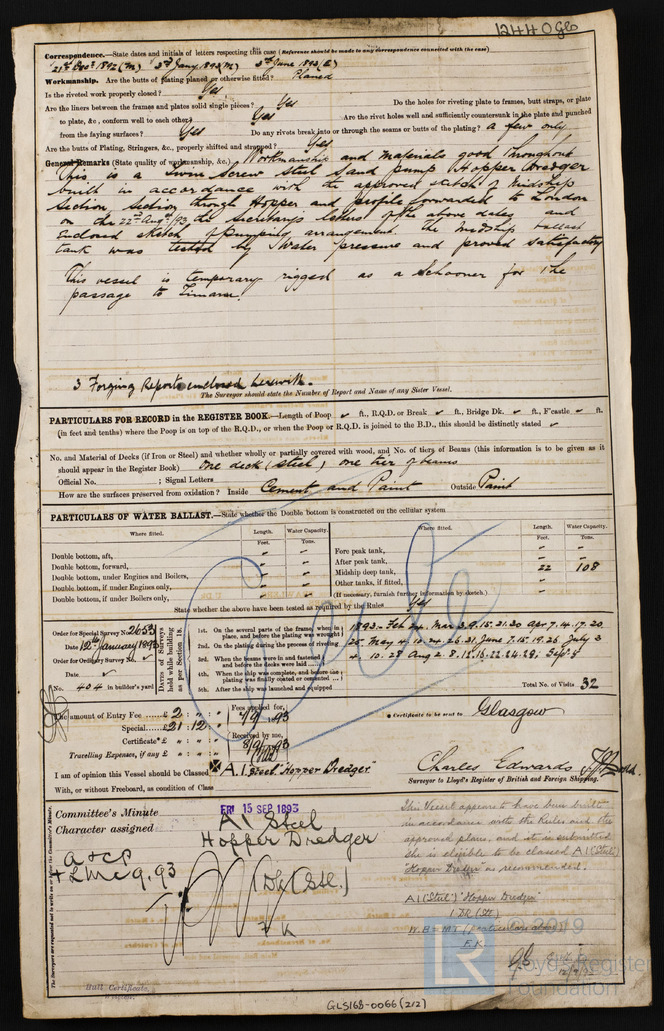 12440 Glb
Correspondence.—State dates and initials of letters respecting this case (Reference should be made to any correspondence connected with the case)
21st Decr 1892 (M) 3rd Jany 1893 (M) 3rd June 1893 (E)
Workmanship. Are the butts of plating planed or otherwise fitted? Planed
Is the riveted work properly closed? Yes
Are the liners between the frames and plates solid single pieces? Yes Do the holes for riveting plate to frames, butt straps, or plate
to plate, &c., conform well to each other? Yes Are the rivet holes well and sufficiently countersunk in the plate and punched
from the faying surfaces? Yes Do any rivets break into or through the seams or butts of the plating? a few only
Are the butts of Plating, Stringers, &c., properly shifted and strapped? Yes
General Remarks (State quality of workmanship, &c.) Workmanship and materials good throughout
This is a Twin Screw Steel Sand pump Hopper Dredger
built in accordance with the approved sketch of Midship
Section section through Hopper and profile forwarded to London
on the 22nd Aug 93 the Secretary's letters of the above dates and
Enclosed sketch of pumping arrangement. The Midship ballast
tank was tested by Water pressure and proved satisfactory
This vessel is temporary rigged as a Schooner for the
passage to Timaru.
3 Forging Reports enclosed herewith.
The Surveyor should state the Number of Report and Name of any Sister Vessel.
PARTICULARS FOR RECORD in the REGISTER BOOK.—Length of Poop ✓ ft., R.Q.D. or Break ✓ ft., Bridge Dk. ✓ ft., F'castle ✓ ft.
(in feet and tenths) where the Poop is on top of the R.Q.D., or when the Poop or R.Q.D. is joined to the B.D., this should be distinctly stated ✓
No. and Material of Decks (if Iron or Steel) and whether wholly or partially covered with wood, and No. of tiers of Beams (this information is to be given as it
should appear in the Register Book) One deck (steel) one tier of beams
Official No. ; Signal Letters
How are the surfaces preserved from oxidation? Inside Cement and Paint Outside Paint
PARTICULARS OF WATER BALLAST.—State whether the Double bottom is constructed on the cellular system
Where fitted. Length. Water Capacity. Where fitted. Length. Water Capacity.
Feet. Tons. Feet. Tons.
Double bottom, aft, Fore peak tank,
Double bottom, forward, After peak tank,
Double bottom, under Engines and Boilers, Midship deep tank, 22 108
Double bottom, if under Engines only, Other tanks, if fitted,
Double bottom, if under Boilers only, (If necessary, furnish further information by sketch.)
State whether the above have been tested as required by the Rules Yes
Order for Special Survey No. 2653
Date 19th January 1893
Order for Ordinary Survey No. ✓
Date ✓
No. 404 in builder's yard
DATES of Surveys held while building as per Section 18.
1st. On the several parts of the frame, when in place, and before the plating was wrought
2nd. On the plating during the process of riveting
3rd. When the beams were in and fastened and before the decks were laid
4th. When the ship was complete, and before the plating was finally coated or cemented
5th. After the ship was launched and equipped
1893. Feb 24. Mar 3.9.15.21.30 Apr 7.14.17.20
25. May 4.10.24.26.31. June 7.15.19.26 July 3
4.10.28 Aug 2.8.12.16.22.24.29; Sept 5
Total No. of Visits 32
The amount of Entry Fee £2 : " : "
Special £21 : 12 : "
Certificate* £ " : " : "
Travelling Expenses, if any £ " : " : "
Fees applied for,
7/9/93
Received by me,
8/9/93
* Certificate to be sent to Glasgow
I am of opinion this Vessel should be Classed A.1. Steel "Hopper Dredger"
With, or without Freeboard, as condition of Class
Charles Edwards
Surveyor to Lloyd's Register of British and Foreign Shipping.
Committee's Minute FRI 15 SEP 1893
Character assigned A1 Steel
Hopper Dredger
a & cp
+ LMC 9.93
1 Dk (Stl.)
F K
The Vessel appears to have been built
in accordance with the Rules and the
approved plans, and it is submitted
she is eligible to be classed A1 (Steel)
"Hopper Dredger" as recommended.
A1 (Steel) "Hopper Dredger"
1 DK (Stl)
W.B. MT (particulars above)
F.K.
The Surveyors are requested not to write on or below the Committee's Minute.
Hull Certificate
© 2019
LR
Lloyd's Register
Foundation
GLS168-0066 (2/2)